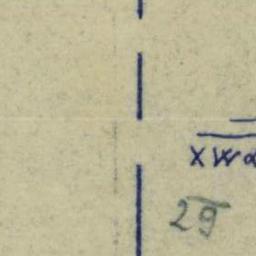 xwα
29